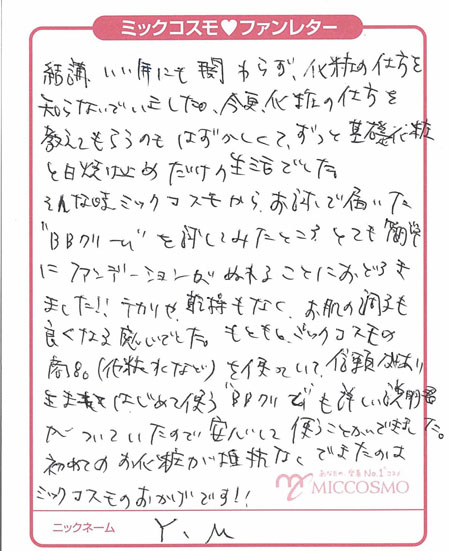 ミックコスモ♥ファンレター
結構いい年にも関わらず、化粧の仕方を
知らないでいました。今更、化粧の仕方を
教えてもらうのもはずかしくて、ずっと基礎化粧
と日焼け止めだけの生活でした。
そんな時ミックコスモから、お試しで届いた
"BBクリーム"を試してみたところ、とても簡単
にファンデーションがぬれることにおどろき
ました!! テカリや、乾燥もなく、お肌の調子も
良くなる感じでした。もともと、ミックコスモの
商品(化粧水など)を使っていて、信頼があり
はじめて使う"BBクリーム"も詳しい説明書
がついていたので安心して使うことができました。
初めてのお化粧が抵抗なくできたのは
ミックコスモのおかげです!!
あなたの、全身No.1コスメ
MICCOSMO
ニックネーム Y.M